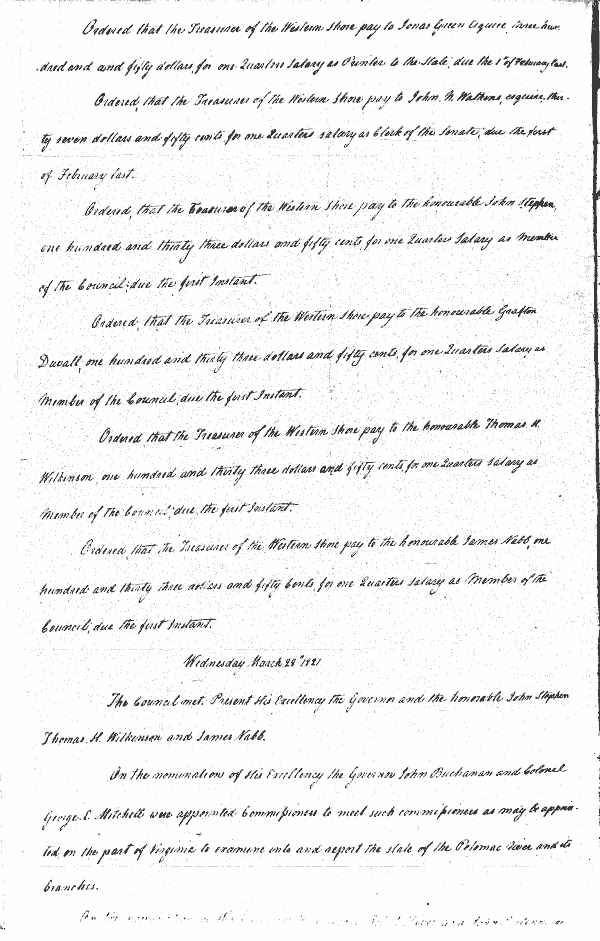 Ordered that the Treasurer of the Western Shore pay to Jonas Green Esquire, three hun
dred and and fifty dollars, for one Quarters Salary as Printer to the State, due the 1st of February last.
Ordered, that the Treasurer of the Western Shore pay to John N. Watkins, esquire, thir-
ty seven dollars and fifty cents for one Quarters salary as Clerk of the Senate, due the first
of February last.
Ordered, that the Treasurer of the Western Shore pay to the honourable John Stephen,
one hundred and thirty three dollars and fifty cents for one Quarters Salary as Member
of the Council, due the first Instant.
Ordered, that the Treasurer of the Western Shore pay to the honourable Grafton
Duvall, one hundred and thirty three dollars and fifty cents, for one Quarters Salary as
Member of the Council, due the first Instant.
Ordered, that the Treasurer of the Western Shore pay to the honourable Thomas H.
Wilkinson, one hundred and thirty three dollars and fifty cents, for one Quarters Salary as
Member of the Council, due, the first Instant.
Ordered, that, the Treasurer of the Western Shore pay to the honourable James Nabb, one
hundred and thirty three dollars and fifty Cents, for one Quarters Salary as Member of the
Council, due the first Instant.
Wednesday March 28th 1821
The Council met. Present His Excellency the Governor and the honorable John Stephen
Thomas H. Wilkinson and James Nabb.
On the nomination of His Excellency the Governor John Buchanan and Colonel
George E. Mitchell were appointed Commissioners to meet such commissioners as may be appoin-
ted on the part of Virginia to examine into and report the state of the Potomac river and its
branches.
On the nomination of His